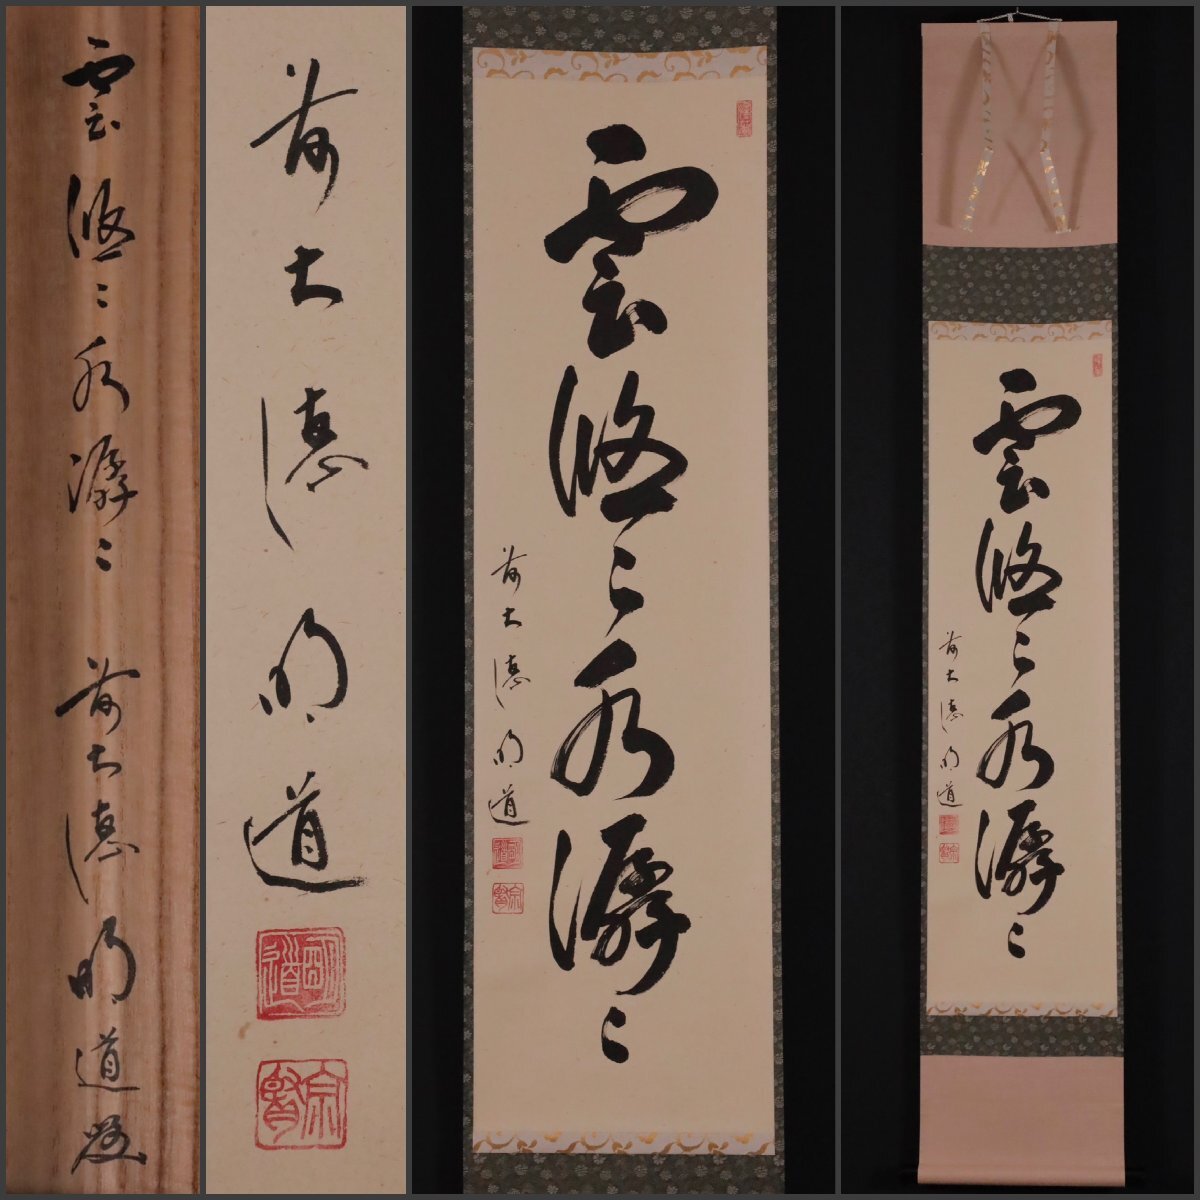 雲悠々水潺々　前大徳明道
前大徳明道
明道
雲悠々水潺々
前大徳明道
雲悠々水潺々
前大徳明道